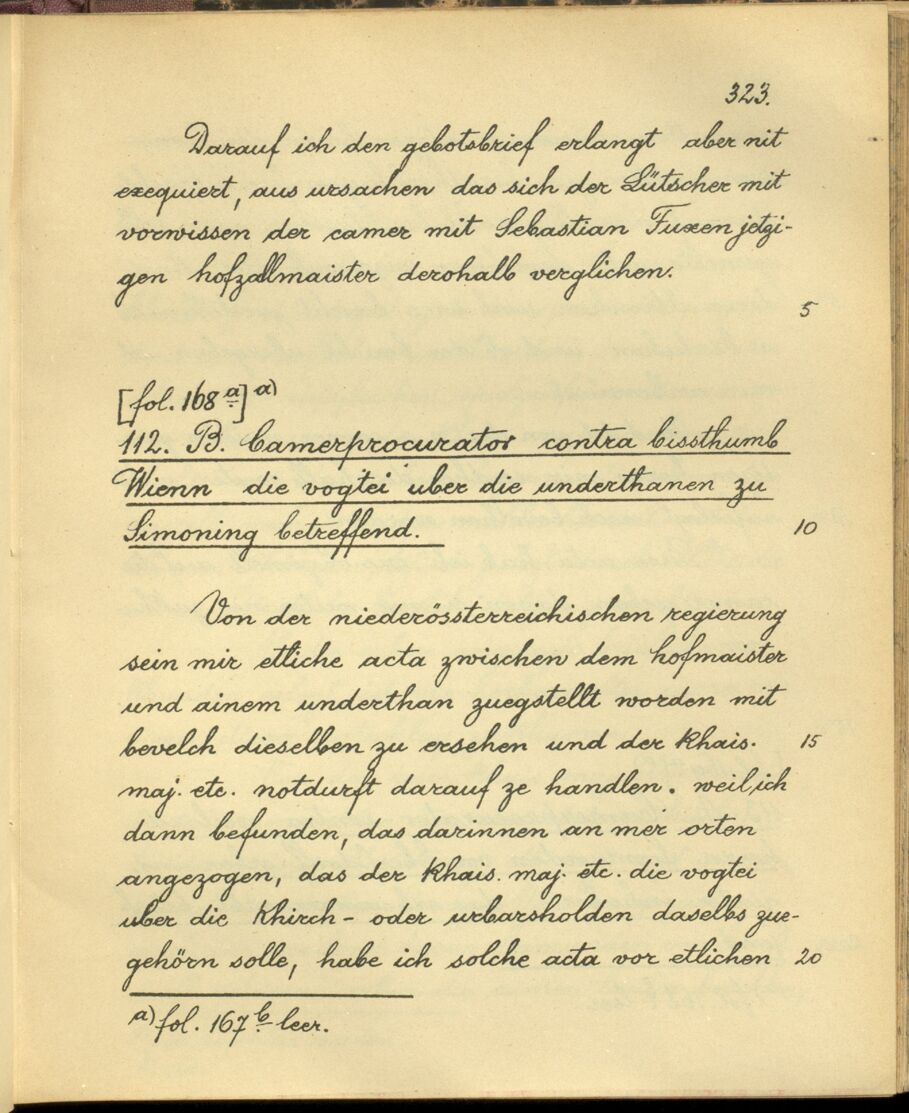 323.
Darauf ich den gebotsbrief erlangt aber nit
exequiert, aus ursachen das sich der Lütscher mit
vorwissen der camer mit Sebastian Fuxen jetzi-
gen hofzallmaister derohalb verglichen.
5
[fol. 168 a] a)
112. B. Camerprocurator contra bissthumb
Wienn die vogtei uber die underthanen zu
Simoning betreffend.
10
Von der niederössterreichischen regierung
sein mir etliche acta zwischen dem hofmaister
und ainem underthan zuegstellt worden mit
bevelch dieselben zu ersehen und der khais.
15
maj. etc. notdurft darauf ze handlen. weil ich
dann befunden, das darinnen an mer orten
angezogen, das der khais. maj. etc. die vogtei
uber die khirch- oder urbarsholden daselbs zue-
gehörn solle, habe ich solche acta vor etlichen
20
a) fol. 167 b leer.